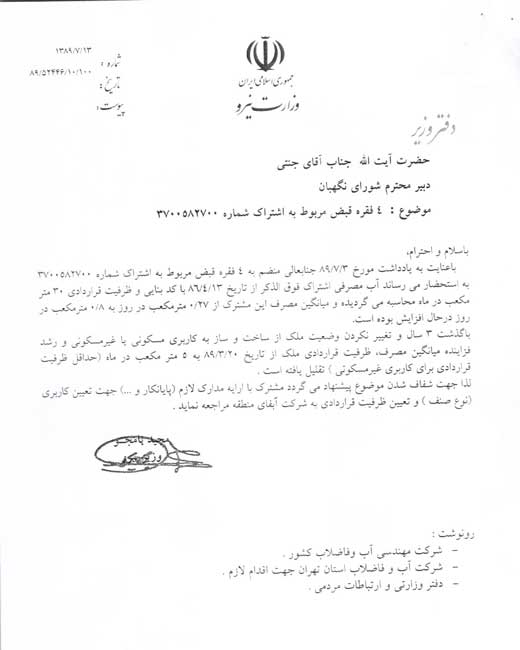 ۱۳۸۹/۷/۱۳
شماره :
۸۹/۵۲۴۴۶/۱۰/۱۰۰
تاریخ :
پیوست :
جمهوری اسلامی ایران
وزارت نیرو
دفتر وزیر
حضرت آیت الله جناب آقای جنتی
دبیر محترم شورای نگهبان
موضوع : ٤ فقره قبض مربوط به اشتراک شماره ۳۷۰۰۵۸۲۷۰۰
باسلام و احترام,
باعنایت به یادداشت مورخ ۸۹/۷/۳ جنابعالی منضم به ٤ فقره قبض مربوط به اشتراک شماره ۳۷۰۰۵۸۲۷۰۰
به استحضار می رساند آب مصرفی اشتراک فوق الذکر از تاریخ ۸۶/۴/۱۳ با کد بنایی و ظرفیت قراردادی ۳۰ متر
مکعب در ماه محاسبه می گردیده و میانگین مصرف این مشترک از ۰/۲۷ مترمکعب در روز به ۰/۸ مترمکعب در
روز درحال افزایش بوده است.
باگذشت ۳ سال و تغییر نکردن وضعیت ملک از ساخت و ساز به کاربری مسکونی یا غیرمسکونی و رشد
فزاینده میانگین مصرف، ظرفیت قراردادی ملک از تاریخ ۸۹/۳/۲۰ به ۵ متر مکعب در ماه (حداقل ظرفیت
قراردادی برای کاربری غیرمسکونی ) تقلیل یافته است .
لذا جهت شفاف شدن موضوع پیشنهاد می گردد مشترک با ارایه مدارک لازم (پایانکار و ...) جهت تعیین کاربری
(نوع صنف ) و تعیین ظرفیت قراردادی به شرکت آبفای منطقه مراجعه نماید .
مجید نامجو
وزیر نیرو
رونوشت :
– شرکت مهندسی آب وفاضلاب کشور .
– شرکت آب و فاضلاب استان تهران جهت اقدام لازم .
– دفتر وزارتی و ارتباطات مردمی .